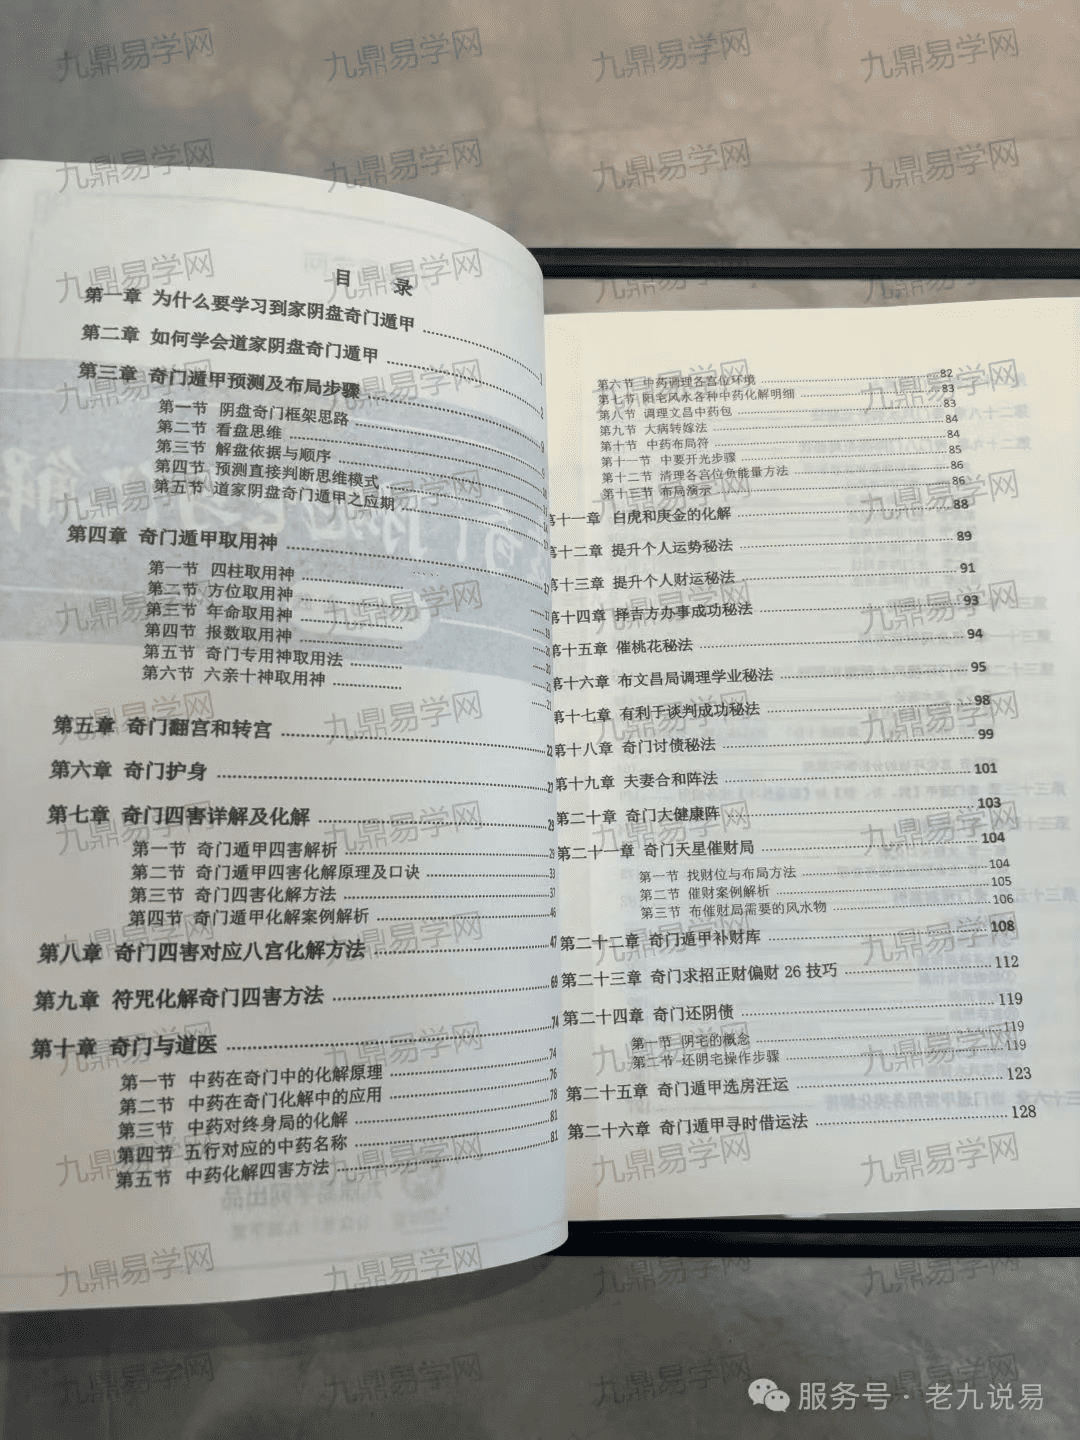 目 录
第一章 为什么要学习到家阴盘奇门遁甲
第二章 如何学会道家阴盘奇门遁甲 1
第三章 奇门遁甲预测及布局步骤 2
第一节 阴盘奇门框架思路
第二节 看盘思维
第三节 解盘依据与顺序
第四节 预测直接判断思维模式
第五节 道家阴盘奇门遁甲之应期
第四章 奇门遁甲取用神
第一节 四柱取用神
第二节 方位取用神
第三节 年命取用神
第四节 报数取用神
第五节 奇门专用神取用法
第六节 六亲十神取用神
第五章 奇门翻宫和转宫 22
第六章 奇门护身 27
第七章 奇门四害详解及化解 29
第一节 奇门遁甲四害解析 29
第二节 奇门遁甲四害化解原理及口诀 33
第三节 奇门四害化解方法 37
第四节 奇门遁甲化解案例解析 46
第八章 奇门四害对应八宫化解方法 47
第九章 符咒化解奇门四害方法 69
第十章 奇门与道医 74
第一节 中药在奇门中的化解原理 74
第二节 中药在奇门化解中的应用 76
第三节 中药对终身局的化解 78
第四节 五行对应的中药名称 81
第五节 中药化解四害方法 81
第六节 中药调理各宫位环境 82
第七节 阳宅风水各种中药化解明细 83
第八节 调理文昌中药包 83
第九节 大病转嫁法 84
第十节 中药布局符 84
第十一节 中要开光步骤 85
第十二节 清理各宫位负能量方法 86
第十三节 布局演示 86
第十一章 白虎和庚金的化解 88
第十二章 提升个人运势秘法 89
第十三章 提升个人财运秘法 91
第十四章 择吉方办事成功秘法 93
第十五章 催桃花秘法 94
第十六章 布文昌局调理学业秘法 95
第十七章 有利于谈判成功秘法 98
第十八章 奇门讨债秘法 99
第十九章 夫妻合和阵法 101
第二十章 奇门大健康阵 103
第二十一章 奇门天星催财局 104
第一节 找财位与布局方法 104
第二节 催财案例解析 105
第三节 布催财局需要的风水物 106
第二十二章 奇门遁甲补财库 108
第二十三章 奇门求招正财偏财 26 技巧 112
第二十四章 奇门还阴债 119
第一节 阴宅的概念 119
第二节 还阴宅操作步骤 119
第二十五章 奇门遁甲选房汪运 123
第二十六章 奇门遁甲寻时借运法 128
九鼎易学网
服务号·老九说易